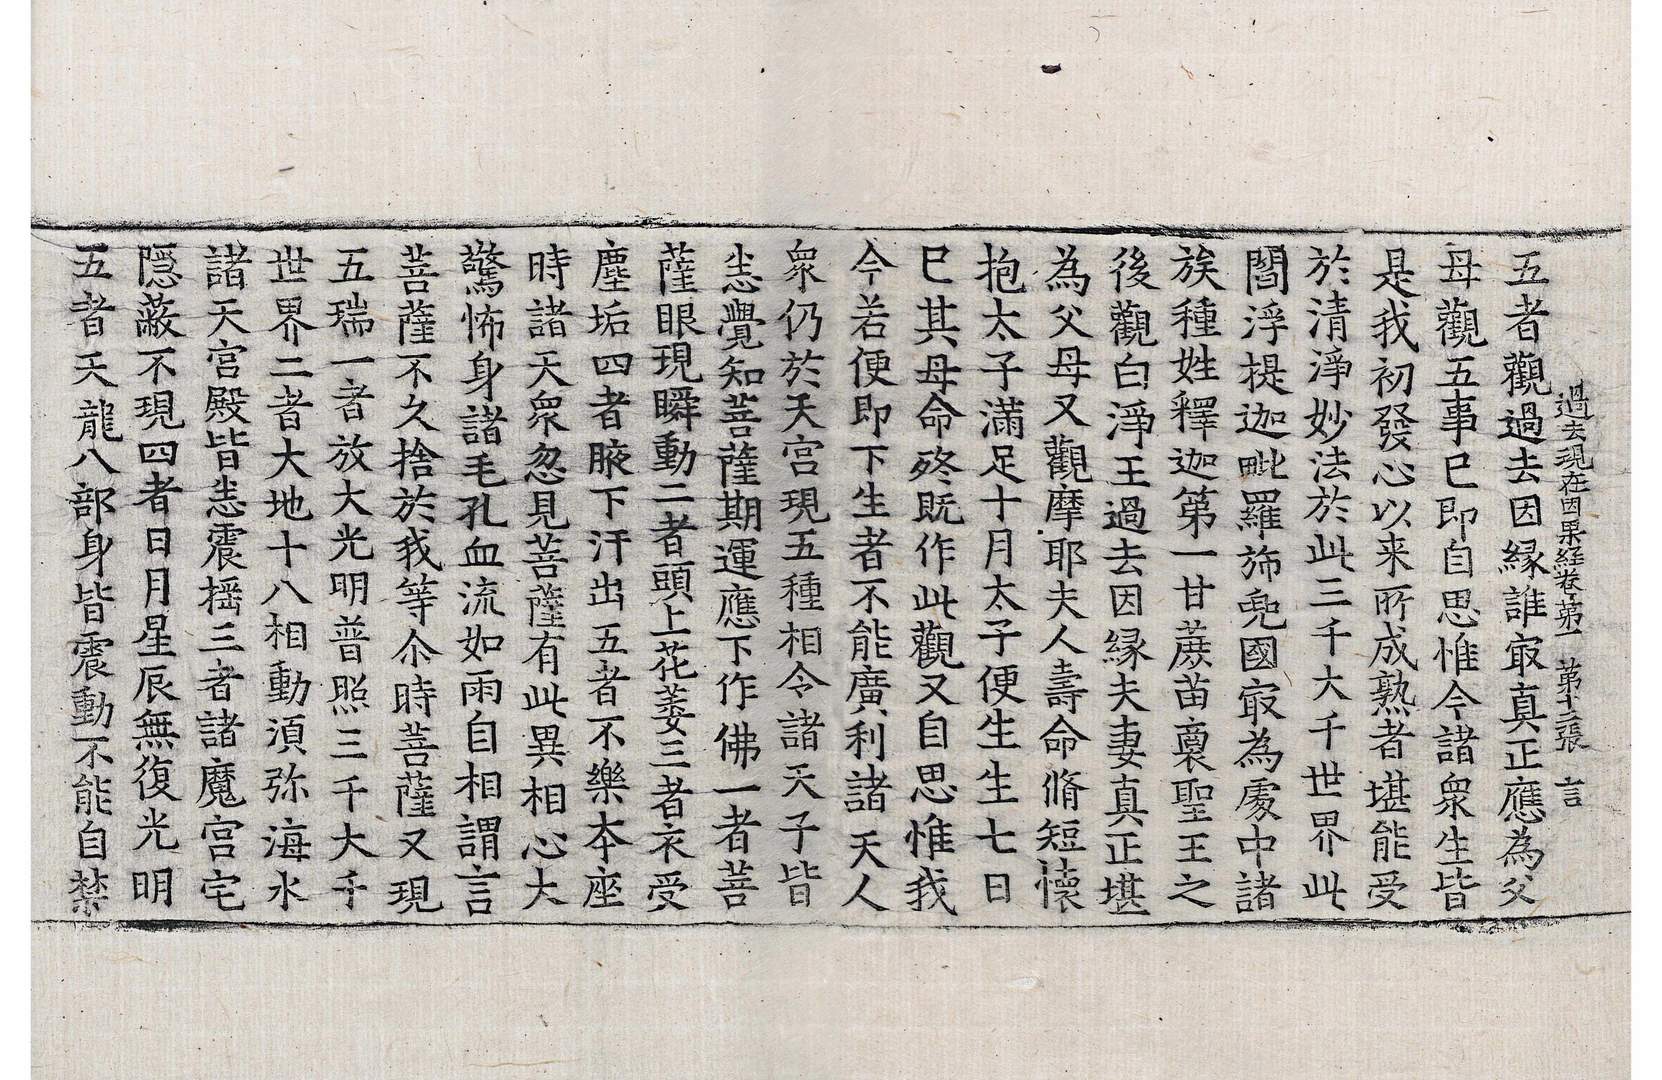 過去現在因果經卷第一 第十二張 言
五者觀過去因緣誰㝡真正應為父
母觀五事已即自思惟今諸衆生皆
是我初發心以来所成熟者堪能受
於清淨妙法於此三千大千世界此
閻浮提迦毗羅斾兜國㝡為處中諸
族種姓釋迦第一甘蔗苗裔聖王之
後觀白淨王過去因緣夫妻真正堪
為父母又觀摩耶夫人壽命脩短懷
抱太子滿足十月太子便生生七日
已其母命終既作此觀又自思惟我
今若便即下生者不能廣利諸天人
衆仍於天宮現五種相令諸天子皆
悉覺知菩薩期運應下作佛一者菩
薩眼現瞬動二者頭上花萎三者衣受
塵垢四者腋下汗出五者不樂本座
時諸天衆忽見菩薩有此異相心大
驚怖身諸毛孔血流如雨自相謂言
菩薩不久捨於我等尒時菩薩又現
五瑞一者放大光明普照三千大千
世界二者大地十八相動須弥海水
諸天宮殿皆悉震搖三者諸魔宮宅
隱蔽不現四者日月星辰無復光明
五者天龍八部身皆震動不能自禁